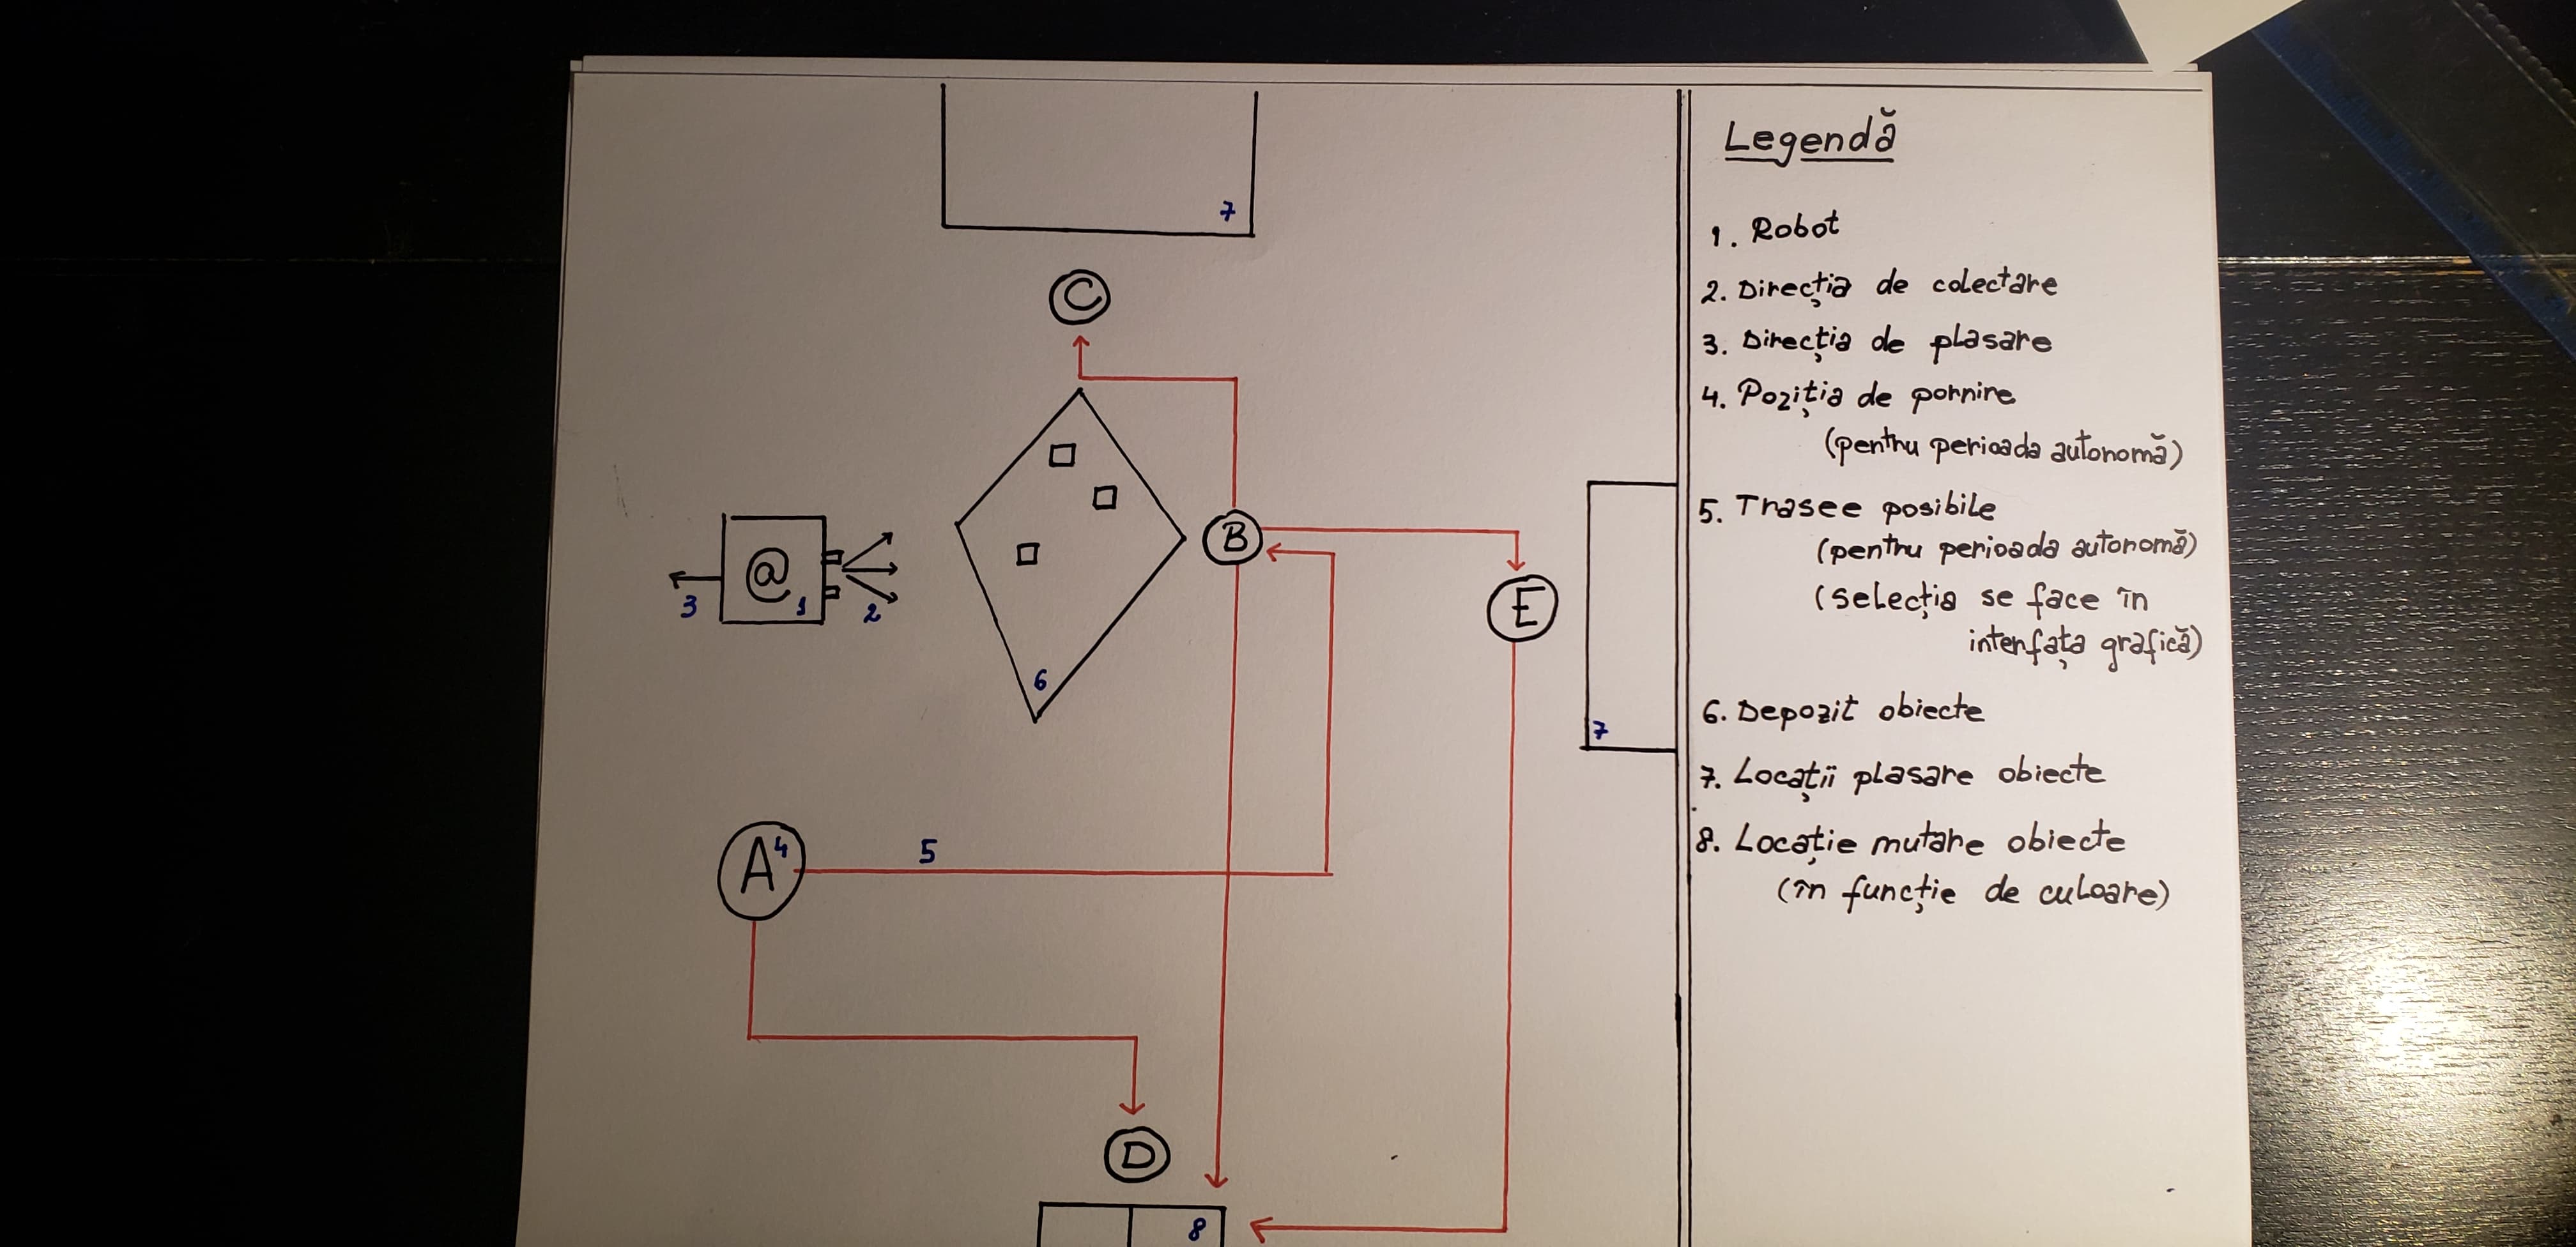 7
C
@ 1
3
2
B
E
6
7
A 4
5
D
8
Legendă
1. Robot
2. Direcția de colectare
3. Direcția de plasare
4. Poziția de pornire
(pentru perioada autonomă)
5. Trasee posibile
(pentru perioada autonomă)
(selecția se face în
interfața grafică)
6. Depozit obiecte
7. Locații plasare obiecte
8. Locație mutare obiecte
(în funcție de culoare)